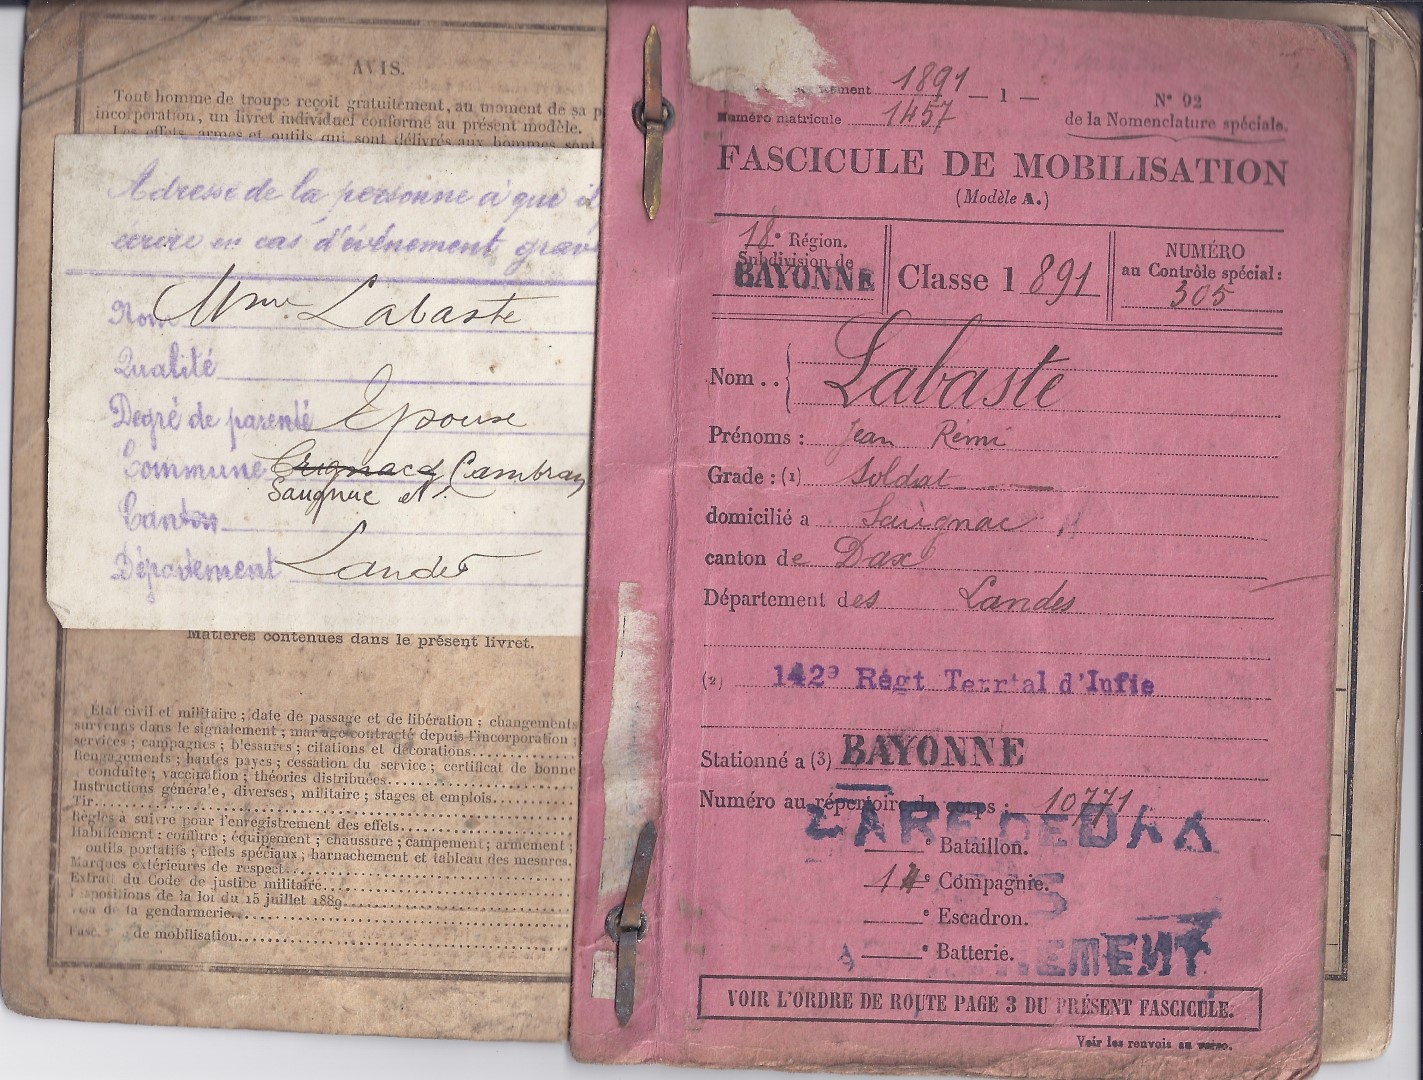 AVIS.
Tout homme de troupe reçoit gratuitement, au moment de sa p
incorporation, un livret individuel conforme au présent modèle.
Les effets, armes et outils qui sont délivrés aux hommes sont
Adresse de la personne à qui il
écrire en cas d'événement grav
Nom Mme Labaste
Qualité
Degré de parenté Epouse
Commune Cambran
Saugnac et
Canton
Département Landes
Matières contenues dans le présent livret.
Etat civil et militaire ; date de passage et de libération ; changements
survenus dans le signalement ; mariage contracté depuis l'incorporation ;
services ; campagnes ; blessures ; citations et décorations
Rengagements ; hautes payes ; cessation du service ; certificat de bonne
conduite ; vaccination ; théories distribuées
Instructions générale, diverses, militaire ; stages et emplois
Tir
Règles à suivre pour l'enregistrement des effets
Habillement : coiffure ; équipement ; chaussure ; campement ; armement ;
outils portatifs ; effets spéciaux ; harnachement et tableau des mesures.
Marques extérieures de respect
Extrait du Code de justice militaire
positions de la loi du 15 juillet 1889
de la gendarmerie
Fasc de mobilisation
ement 1891 — 1 —
Numéro matricule 1457
N° 92
de la Nomenclature spéciale.
FASCICULE DE MOBILISATION
(Modèle A.)
18e Région.
Subdivision de
BAYONNE
Classe 1891
NUMÉRO
au Contrôle spécial :
305
Nom .. Labaste
Prénoms : Jean Rémi
Grade : (1) Soldat
domicilié a Saugnac
canton de Dax
Département des Landes
(2) 142e Régt Terrtal d'Infie
Stationné a (3) BAYONNE
Numéro au répertoire du corps : 10771
GARE DE DAX
e Bataillon.
e Compagnie.
e Escadron.
e Batterie.
VOIR L'ORDRE DE ROUTE PAGE 3 DU PRÉSENT FASCICULE.
Voir les renvois au verso.